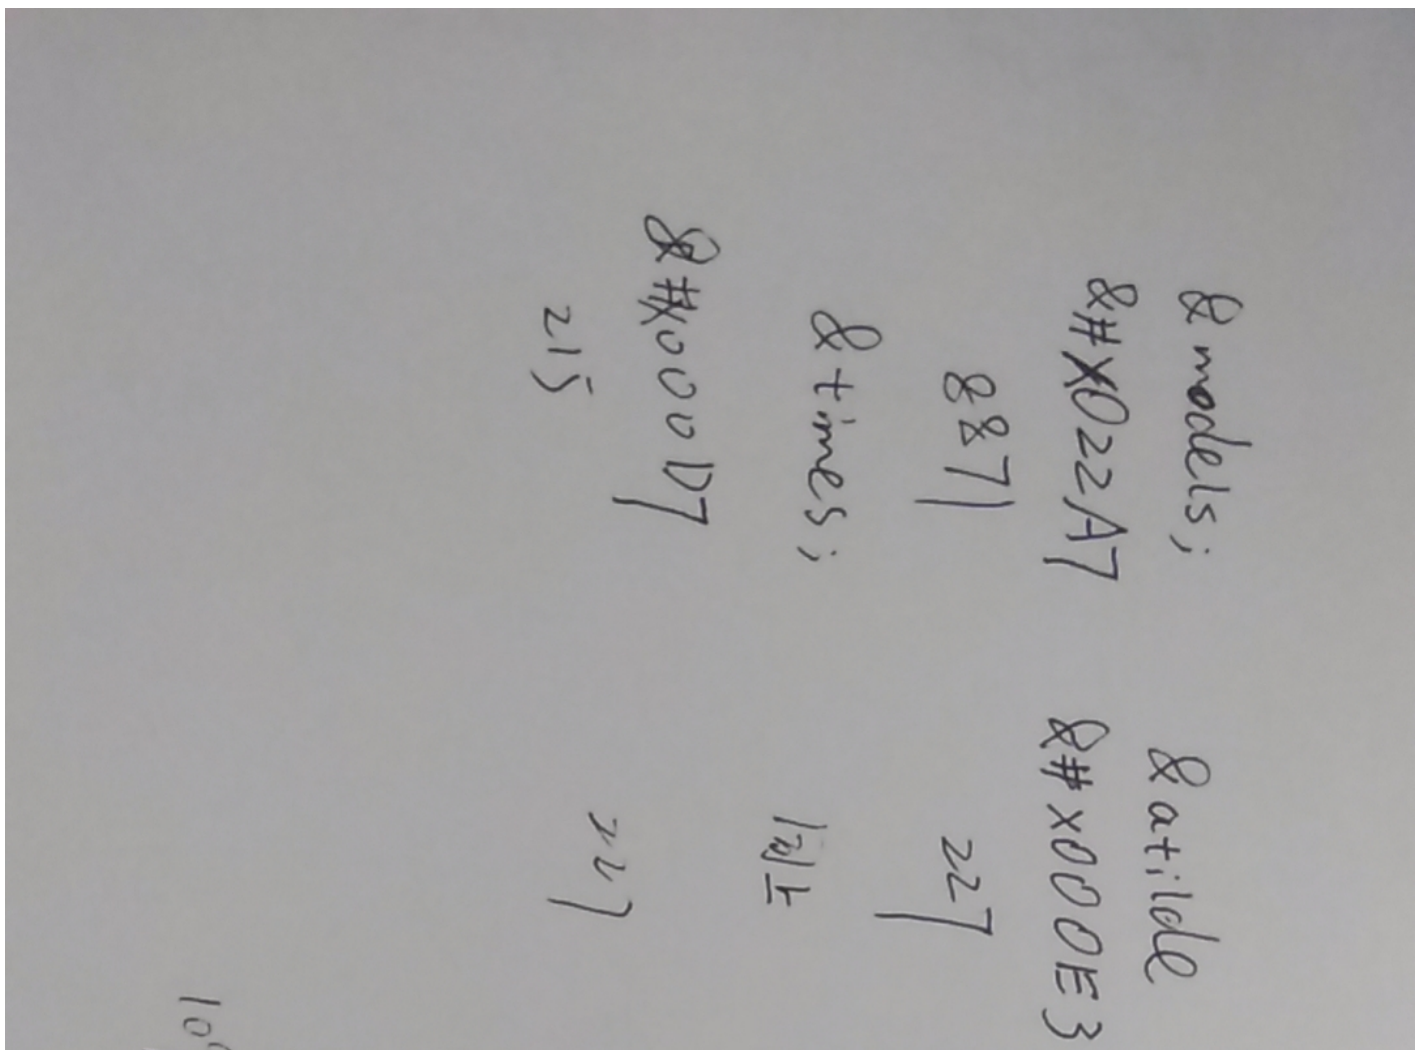 &models; &atilde
&#X022A7 &#x000E3
8871 227
&times; 同上
&#x000D7 227
215